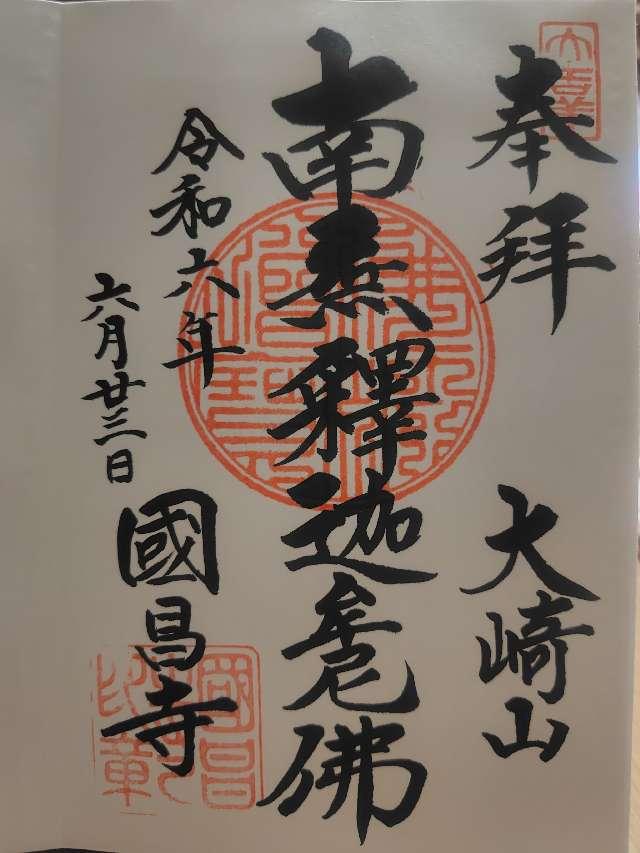 奉拜
大崎山
南無釋迦牟尼佛
令和六年
六月廿三日
國昌寺